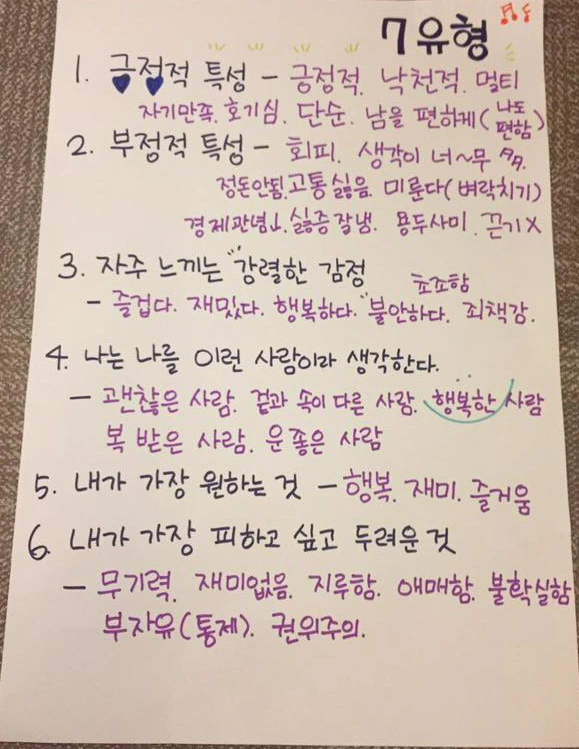 7유형
1. 긍정적 특성 - 긍정적. 낙천적. 멀티
자기만족. 호기심. 단순. 남을 편하게(나도 편함)
2. 부정적 특성 - 회피. 생각이 너~무 多多.
정돈안됨. 고통싫음. 미룬다(벼락치기)
경제관념↓. 싫증잘냄. 용두사미. 끈기X
3. 자주 느끼는 "강렬한 감정
초조함
- 즐겁다. 재밌다. 행복하다. "불안하다. 죄책감.
4. 나는 나를 이런 사람이라 생각한다.
- 괜찮은 사람. 겉과 속이 다른 사람. 행복한 사람
복 받은 사람. 운 좋은 사람
5. 내가 가장 원하는 것 - 행복. 재미. 즐거움
6. 내가 가장 피하고 싶고 두려운 것
- 무기력. 재미없음. 지루함. 애매함. 불확실함
부자유(통제). 권위주의.